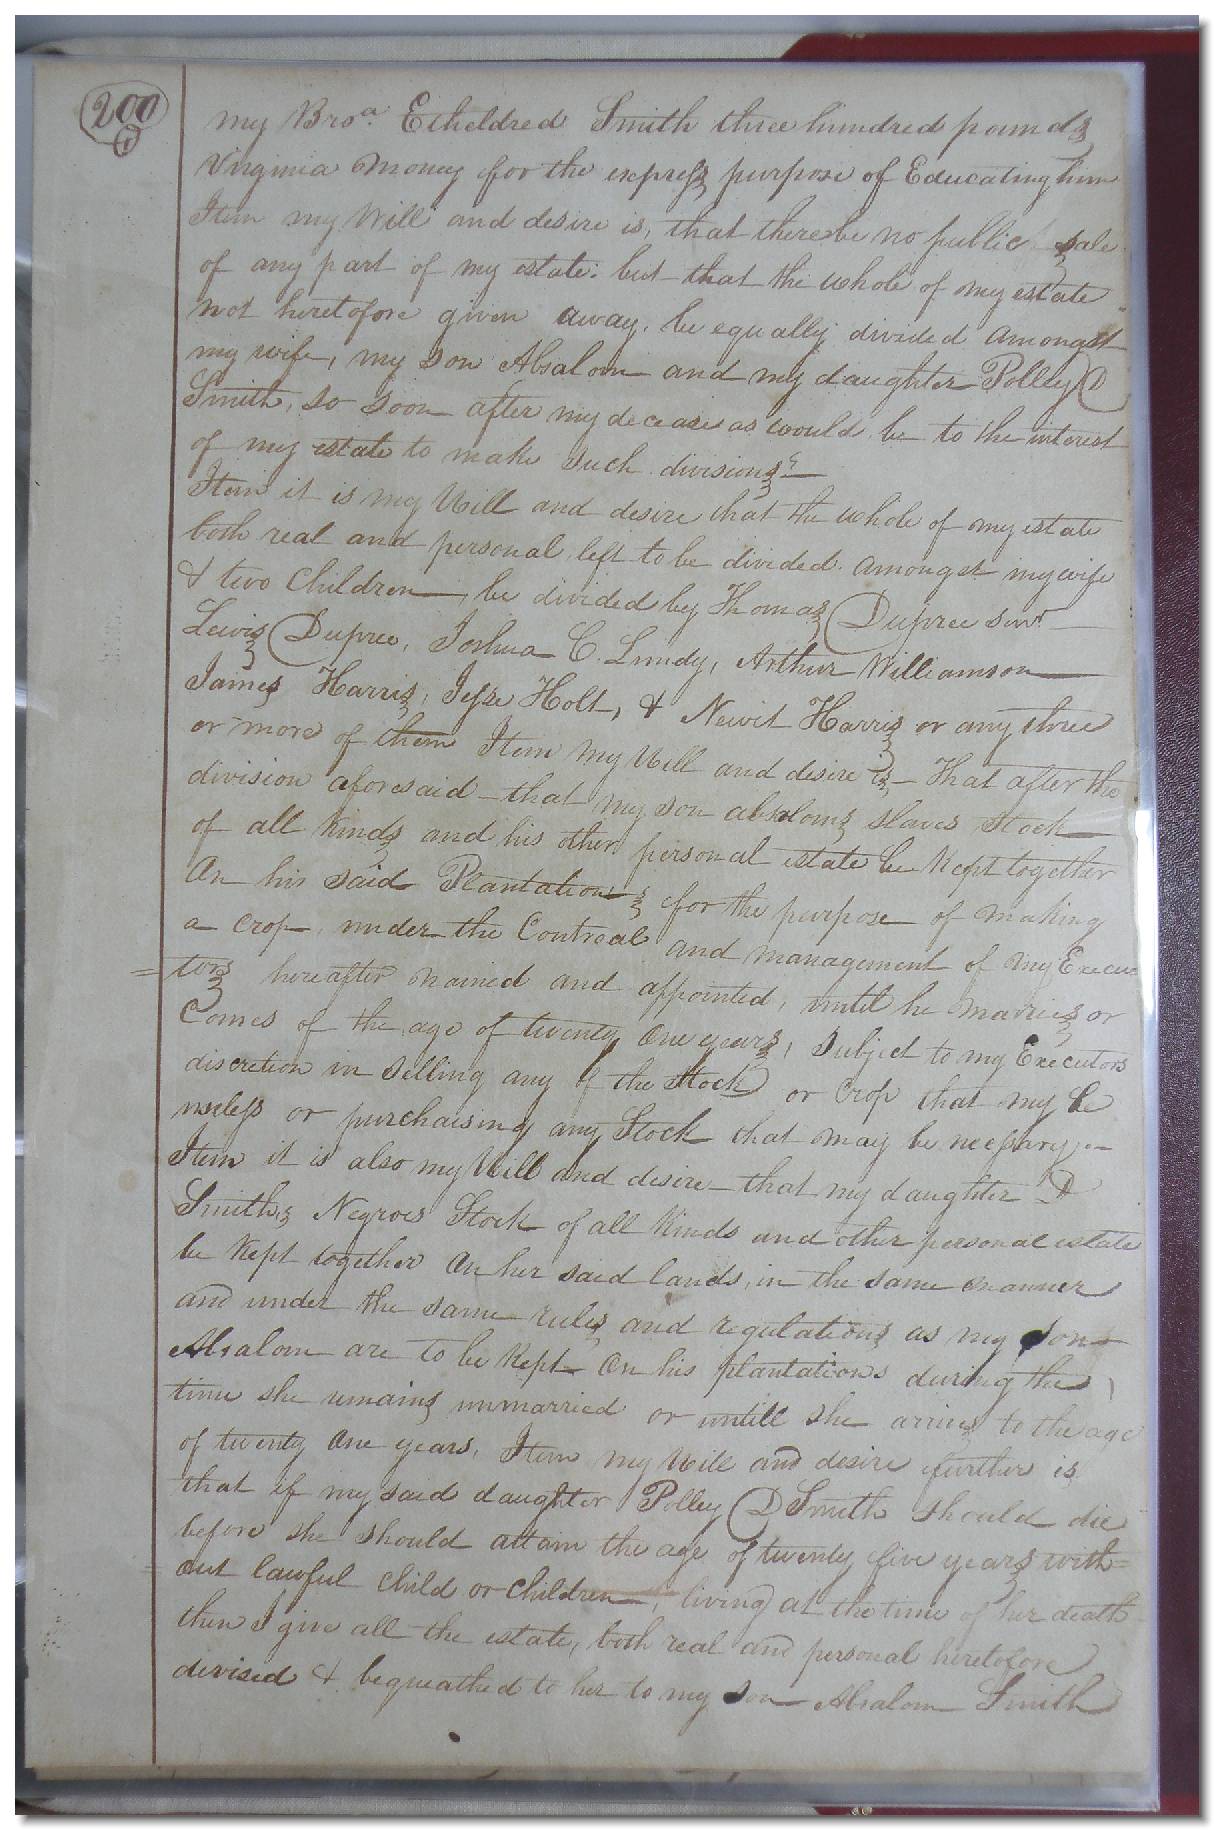 200
my Bro.a Etheldred Smith three hundred pounds
Virginia Money for the express purpose of Educating him
Item my Will and desire is, that there be no public sale
of any part of my estate: but that the whole of my estate
not heretofore given away, be equally divided amongst
my wife, my son Absalom and my daughter Polley D
Smith, so soon after my decease as would be to the interest
of my estate to make such divisions
Item it is my Will and desire that the whole of my estate
both real and personal left to be divided amongst my wife
& two Children, be divided by Thomas Dupree Senr
Lewis Dupree, Joshua C. Lundy, Arthur Williamson
James Harris, Jesse Holt, & Newit Harris or any three
or more of them Item my Will and desire is - that after the
division aforesaid - that my son absaloms slaves Stock
of all kinds and his other personal estate be kept together
On his said Plantations for the purpose of making
a Crop, under the Controal and management of my Execu
=tors hereafter named and appointed, until he marries or
Comes of the age of twenty One years, Subject to my Executors
discretion in Selling any of the Stock or Crop that my be
useless or purchaising any Stock that may be necessary -
Item it is also my Will and desire - that my daughter D
Smiths Negroes Stock of all Kinds and other personal estate
be Kept together On her said lands, in the same manner
and under the same rules and regulations as my son
Absalom are to be Kept On his plantations during the
time she remains unmarried or untill she arrives to the age
of twenty One years, Item my Will and desire further is
that if my said daughter Polley D Smith should die
before she should attain the age of twenty five years with=
=out lawful Child or Children, living at the time of her death
then I give all the estate, both real and personal heretofore
devised & bequeathed to her to my son Absalom Smith